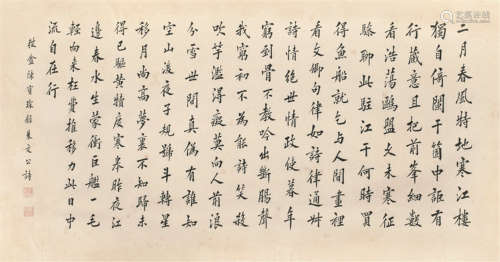 二月春風特地寒江樓
獨自倚闌干箇中詎有
行藏意且把前峯細數
看浩蕩鷗盟久未寒征
驂聊此駐江干何時買
得魚船就乞與人間畫裡
看文卿句律如詩律通
詩情絕世情政使暮年
窮到骨不教吟出斷腸聲
我窮初不為能詩笑殺
吹竽濫得癡莫向人前浪
分雪世間真偽有誰知
空山後夜子規號斗轉星
移月尚高夢裏不知歸未
得已驅黃犢度寒皋昨夜江
邊春水生蒙衝巨艦一毛
輕向來枉費推移力此日中
流自在行
弢盦陳寶琛錄朱文公詩